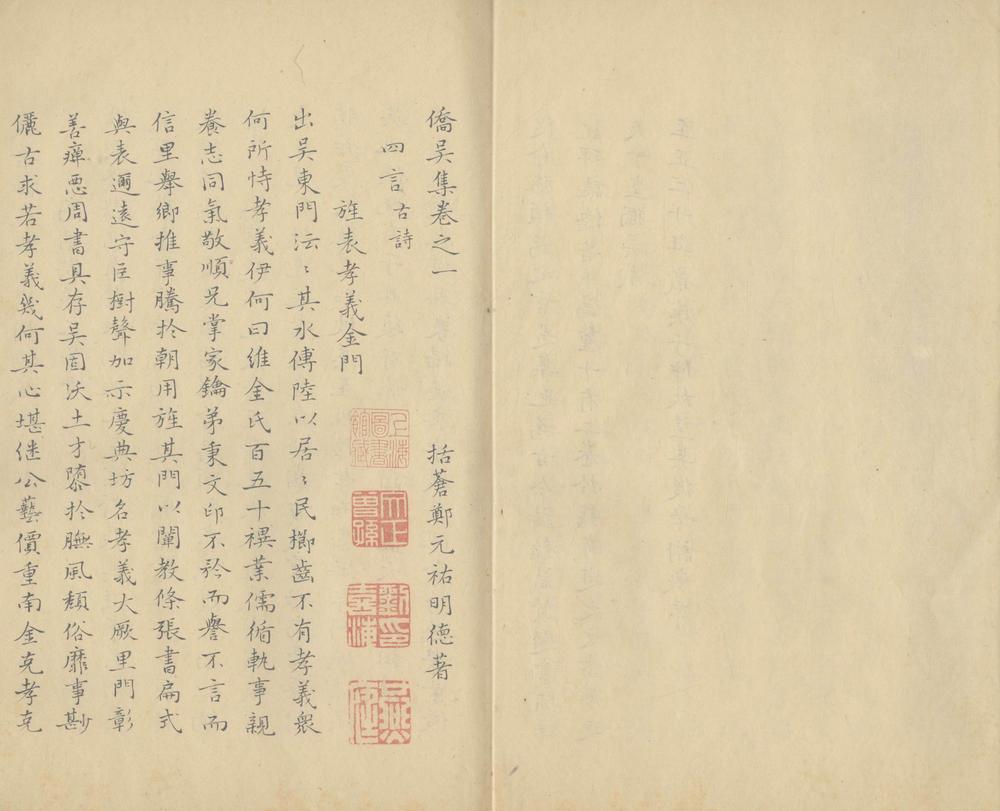 僑吳集卷之一
括蒼鄭元祐明德著
四言古詩
旌表孝義金門
出吳東門沄〻其水傅陸以居〻民櫛齒不有孝義衆
何所恃孝義伊何曰維金氏百五十禩業儒循軌事親
養志同氣敬順兄掌家鑰弟秉文印不矜而譽不言而
信里舉鄉推事騰扵朝用旌其門以闡教條張書扁式
與表邇遠守臣樹聲加示慶典坊名孝義大厥里門彰
善癉惡周書具存吳固沃土才隳扵膴風頹俗靡事尠
儷古求若孝義幾何其心堪继公藝價重南金克孝克
上海圖書館藏